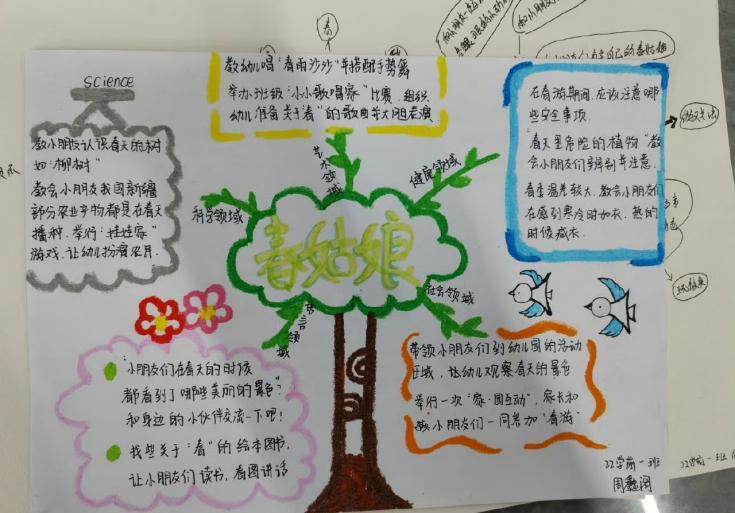 science
教小朋友认识春天的树
如"柳树"
教会小朋友我国新疆
部分农业产物都是在春天
播种.举行"娃娃家"
游戏.让幼儿扮演农民.
教幼儿唱"春雨沙沙"并搭配手势舞
举办班级"小小歌唱家"比赛.组织
幼儿准备关于"春"的歌曲并大胆表演
在春游期间,应该注意哪
些安全事项.
"春天里危险的植物"教
会小朋友们辨别并注意.
春季温差较大.教会小朋友们
在感到寒冷时加衣.热的
时候减衣.
科学领域
艺术领域
健康领域
春姑娘
语言领域
社会领域
"小朋友们在春天的时候
都看到了哪些美丽的景色"
和身边的小伙伴交流一下吧!
找些关于"春"的绘本图书.
让小朋友们读书,看图讲话
带领小朋友们到幼儿园的活动
区域,让幼儿观察春天的景色
举行一次"家·园互动",家长和
小朋友们一同参加"春游"
22学前一班